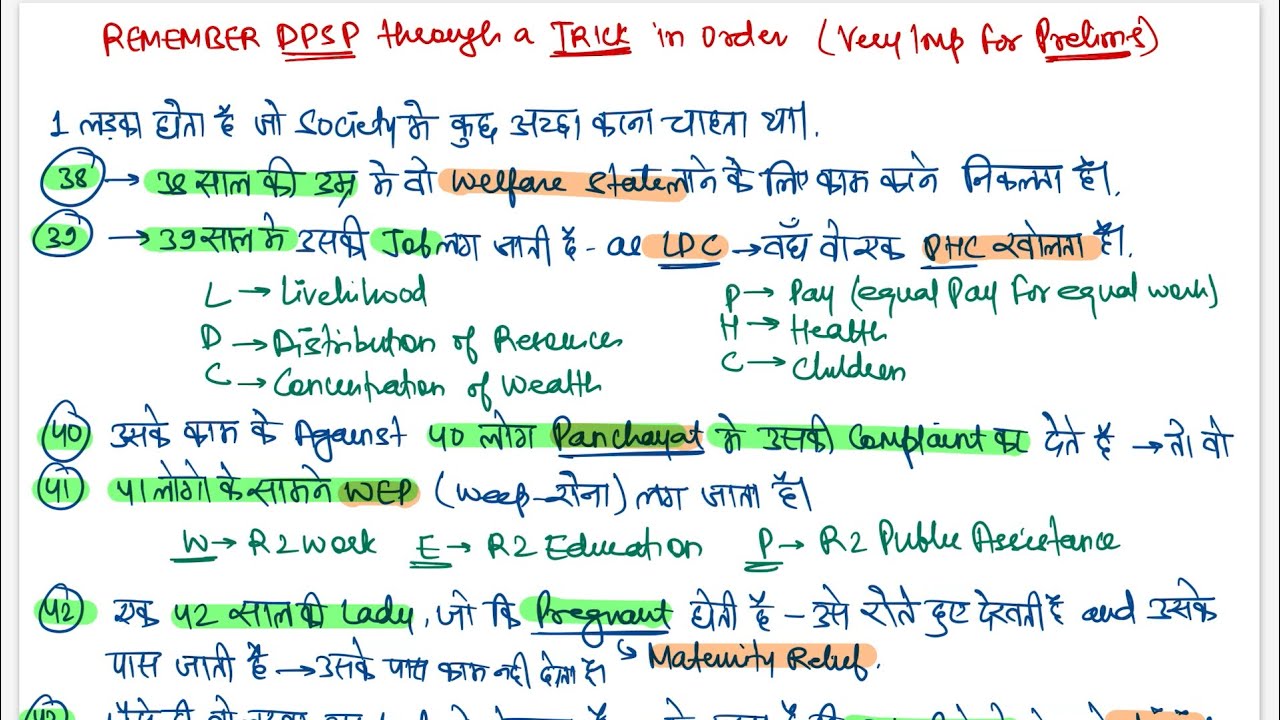 REMEMBER DPSP through a TRICK in order (Very Imp for Prelims)
1 लड़का होता है जो Society मे कुछ अच्छा करना चाहता था।
38 → 38 साल की उम्र मे वो Welfare State लाने के लिए काम करने निकलता है।
39 → 39 साल मे उसकी Job लग जाती है - as LDC → वहाँ वो एक PHC खोलता है।
L → Livelihood
P → Pay (equal Pay for equal work)
D → Distribution of Resources
H → Health
C → Concentration of Wealth
C → Children
40 उसके काम के Against 40 लोग Panchayat मे उसकी Complaint कर देते है → तो वो
41 41 लोगो के सामने WEP (Weep - रोना) लग जाता है।
W → R2 Work E → R2 Education P → R2 Public Assistance
42 एक 42 साल की Lady, जो कि Pregnant होती है – उसे रोते हुए देखती है and उसके
पास जाती है → उसके पास काम नही होता है। Maternity Relief.
43